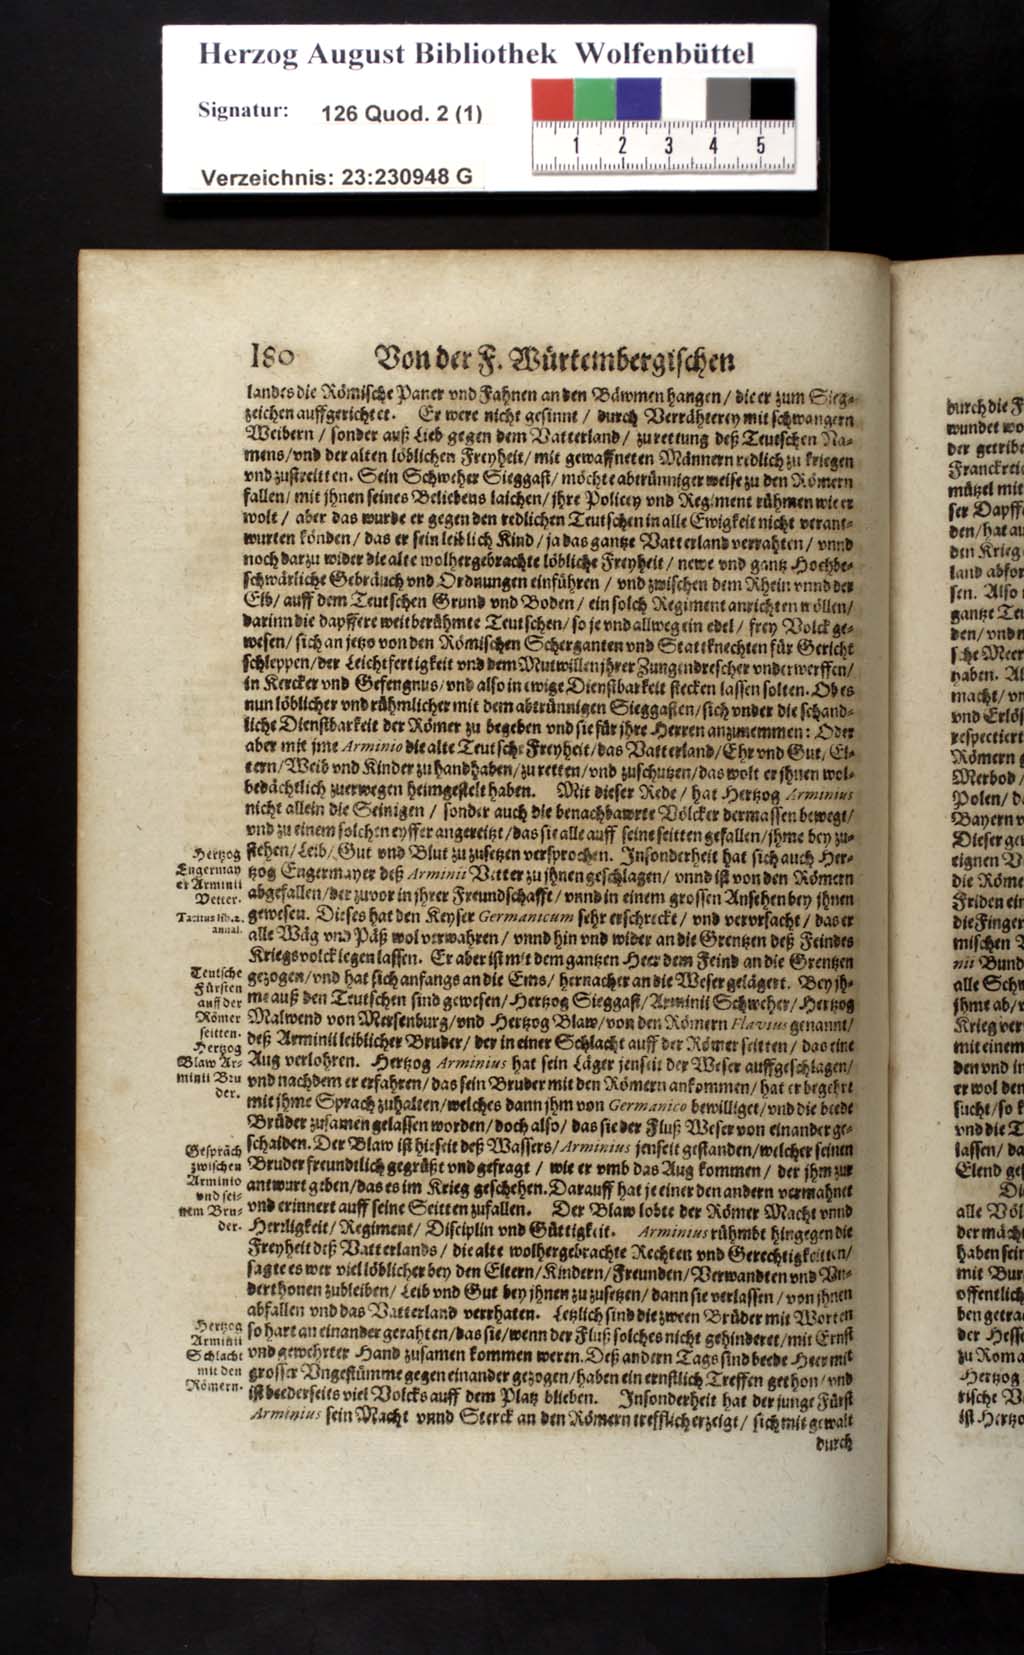 Herzog August Bibliothek Wolfenbüttel
Signatur: 126 Quod. 2 (1)
1 2 3 4 5
Verzeichnis: 23:230948 G
180 Von der F. Würtembergischen
landes die Römische Paner vnd Fahnen an den Bäwmen hangen / die er zum Sieg-
zeichen auffgerichtet. Er were nicht gesinnt / durch Verrähterey mit schwangern
Weibern / sonder auß Lieb gegen dem Vatterland / zu rettung deß Teutschen Na-
mens / vnd der alten löblichen Freyheit / mit gewaffneten Männern redlich zu kriegen
vnd zustreitten. Sein Schweher Sieggast / möchte abtrünniger weise zu den Römern
fallen / mit jhnen seines Beliebens laichen / jhre Policey vnd Regiment rühmen wie er
wolt / aber das wurde er gegen den redlichen Teutschen in alle Ewigkeit nicht verant-
wurten könden / das er sein leiblich Kind / ja das gantze Vatterland verrahten / vnnd
noch darzu wider die alte wolhergebrachte löbliche Freyheit / newe vnd gantz Hochbe-
schwärliche Gebräuch vnd Ordnungen einführen / vnd zwischen dem Rhein vnnd der
Elb / auff dem Teutschen Grund vnd Boden / ein solch Regiment anrichten wöllen /
darinn die dapffere weitberühmte Teutschen / so je vnd allweg ein edel / frey Volck ge-
wesen / sich an jetzo von den Römischen Scherganten vnd Stattknechten für Gericht
schleppen / der Leichtfertigkeit vnd dem Mutwillen jhrer Zungendrescher vnderwerffen /
in Kercker vnd Gefengnus / vnd also in ewige Dienstbarkeit stecken lassen solten. Ob es
nun löblicher vnd rühmlicher mit dem abtrünnigen Sieggasten / sich vnder die schand-
liche Dienstbarkeit der Römer zu begeben vnd sie für jhre Herren anzunemmen: Oder
aber mit jme Arminio die alte Teutsche Freyheit / das Vatterland / Ehr vnd Gut / El-
tern / Weib vnd Kinder zu handhaben / zu retten / vnd zuschutzen / das wolt er jhnen wol-
bedächtlich zuerwegen heimgestelt haben. Mit dieser Rede / hat Hertzog Arminius
nicht allein die Seinigen / sonder auch die benachbawrte Völcker dermassen bewegt /
vnd zu einem solchen eyffer angereitzt / das sie alle auff seine seitten gefallen / jhme bey zu-
stehen / Leib / Gut vnd Blut zu zusetzen versprochen. Insonderheit hat sich auch Her-
tzog Engermayer deß Arminii Vetter zu jhnen geschlagen / vnnd ist von den Römern
abgefallen / der zuvor in jhrer Freundschafft / vnnd in einem grossen Ansehen bey jhnen
gewesen. Dieses hat den Keyser Germanicum sehr erschreckt / vnd verursacht / das er
alle Wäg vnd Päß wol verwahren / vnnd hin vnd wider an die Grentzen deß Feindes
Kriegsvolck legen lassen. Er aber ist mit dem gantzen Heer dem Feind an die Grentzen
gezogen / vnd hat sich anfangs an die Ems / hernacher an die Weser gelägert. Bey jh-
me auß den Teutschen sind gewesen / Hertzog Sieggast / Arminii Schweher / Hertzog
Malwend von Mersenburg / vnd Hertzog Blaw / von den Römern Flavius genannt /
deß Arminii leiblicher Bruder / der in einer Schlacht auff der Römer seitten / das eine
Aug verlohren. Hertzog Arminius hat sein Läger jenseit der Weser auffgeschlagen /
vnd nachdem er erfahren / das sein Bruder mit den Römern ankommen / hat er begehrt
mit jhme Sprach zuhalten / welches dann jhm von Germanico bewilliget / vnd die beede
Brüder zusamen gelassen worden / doch also / das sie der Fluß Weser von einander ge-
schaiden. Der Blaw ist hieseit deß Wassers / Arminius jenseit gestanden / welcher seinen
Bruder freundtlich gegrüßt vnd gefragt / wie er vmb das Aug kommen / der jhm zur
antwurt geben / das es im Krieg geschehen. Darauff hat je einer den andern vermahnet
vnd erinnert auff seine Seitten zufallen. Der Blaw lobte der Römer Macht vnnd
Herrligkeit / Regiment / Disciplin vnd Güttigkeit. Arminius rühmbt hingegen die
Freyheit deß Vatterlands / die alte wolhergebrachte Rechten vnd Gerechtigkeitten /
sagte es wer viel löblicher bey den Eltern / Kindern / Freunden / Verwandten vnd Vn-
derthonen zubleiben / Leib vnd Gut bey jhnen zu zusetzen / dann sie verlassen / von jhnen
abfallen vnd das Vatterland verrhaten. Letzlich sind die zween Brüder mit Worten
so hart an einander gerahten / das sie / wenn der Fluß solches nicht gehinderet / mit Ernst
vnd gewehrter Hand zusamen kommen weren. Deß andern Tags sind beede Heer mit
grosser Vngestümme gegen einander gezogen / haben ein ernstlich Treffen gethon / vnd
ist beederseits viel Volcks auff dem Platz blieben. Insonderheit hat der junge Fürst
Arminius sein Macht vnnd Sterck an den Römern trefflich erzeigt / sich mit gewalt
durch
Hertzog
Engermay
er Arminii
Vetter.
Tacitus lib. 2.
annal.
Teutsche
Fürsten
auff der
Römer
seitten.
Hertzog
Blaw Ar-
minii Bru
der.
Gespräch
zwischen
Arminio
vnd sei-
nem Bru-
der.
Hertzog
Arminii
Schlacht
mit den
Römern.
durch die F
wundet wo
der getribe
Franckreic
mützel mit
ser Dapffe
den / hat au
den Krieg
land abfor
sen. Also
gantze Teu
den / vnd n
sche Meer
haben. Al
macht / vn
vnd Erlös
respectiert
Römern g
Merbod /
Polen / d
Bayern v
Dieser gew
eignen V
die Röme
Friden ein
die Finger
mischen
nii Bund
alle Schw
jhme ab / v
Krieg ver
mit einem
den vnd in
er wol den
sucht / so k
vnd die T
lassen / da
Elend gef
Di
alle Völ
der mächt
haben sein
mit Bur
offentlich
ben getra
der Hesse
zu Roma
Hertzog
rische V
ist Hertzo